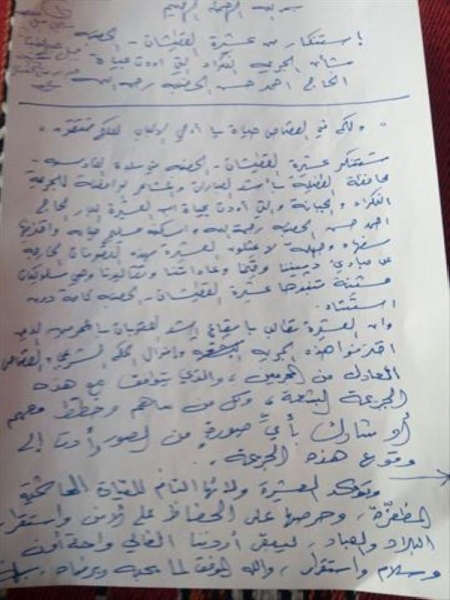 بسم الله الرحمن الرحيم
استنكار من عشيرة القطيشان - الحصنه
بشأن الجريمة النكراء التي أودت بحياة
الحاج احمد حسن الحصنه رحمه الله
" ولكم في القصاص حياة يا أولي الألباب لعلكم تتقون "
تستنكر عشيرة القطيشان - الحصنه في بلدة القادسيه -
محافظة الطفيلة بأشد العبارات للجريمة
النكراء والجبانة والتي أودت بحياة ابن العشيرة البار الحاج
احمد حسن الحصنه رحمه الله واسكنه فسيح جناته
العشيرة بهذه الخارجة
عن مبادئ ديننا وقيمنا وعاداتنا وتقاليدنا وهي سلوكيات
مشينة تنبذها عشيرة القطيشان - الحصنه كافة دون
استثناء.
وان العشيرة تطالب بإيقاع أشد العقوبات بالمجرمين الذين
اقترفوا هذه الجريمة البشعة وانزال الحكم الشرعي والقصاص
العادل من المجرمين، والذي يتوافق مع هذه
الجريمة البشعة، وكل من ساهم وخطط معهم
أو شارك بأيِّ صورة من الصور وأدت إلى
وقوع هذه الجريمة.
وتؤكد العشيرة ولائها التام للقيادة الهاشمية
المظفرة، وحرصها على الحفاظ على أمن واستقرار
البلاد والعباد، ليبقى أردننا الغالي واحة أمن
وسلام واستقرار، والله الموفق لما يحبه ويرضاه.